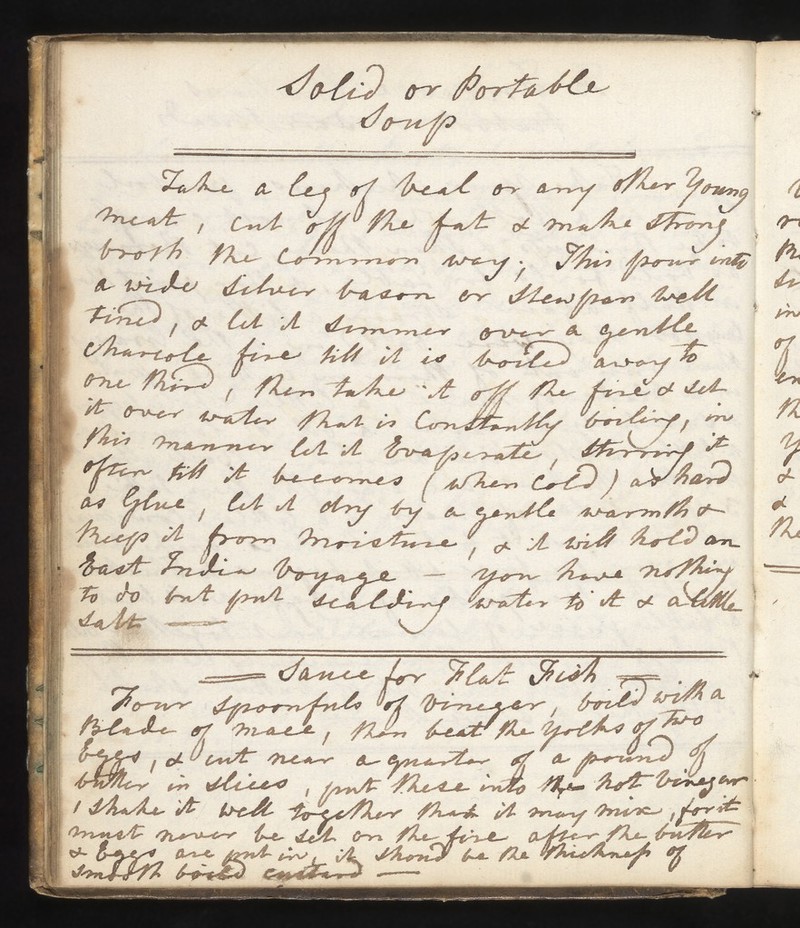 Solid or Portable
Soup
Take a leg of Veal or any other Young
meat, cut off the fat & make strong
broth the common way; This pour into
a wide Silver bason or Stewpan well
tined, & let it Simmer over a gentle
Charcole fire till it is boiled away to
one third, then take it off the fire & set
it over water that is Constantly boiling, in
this manner let it Evaperate, Stirring it
often till it becomes (when Cold) as hard
as Glue, let it dry by a gentle warmth &
keep it from moisture, & it will hold an
East India Voyage — you have nothing
to do but put scalding water to it & a little
Salt —
Sauce for Flat Fish
Four Spoonfuls of Vinegar, boil'd with a
Blade of mace, then beat the Yolks of two
Eggs, & cut near a quarter of a pound of
butter in slices, put these into the hot Vinegar
, shake it well together that it may mix, for it
must never be set on the fire after the butter
& Eggs are put in, it shoud be the thickness of
smooth boiled custard —